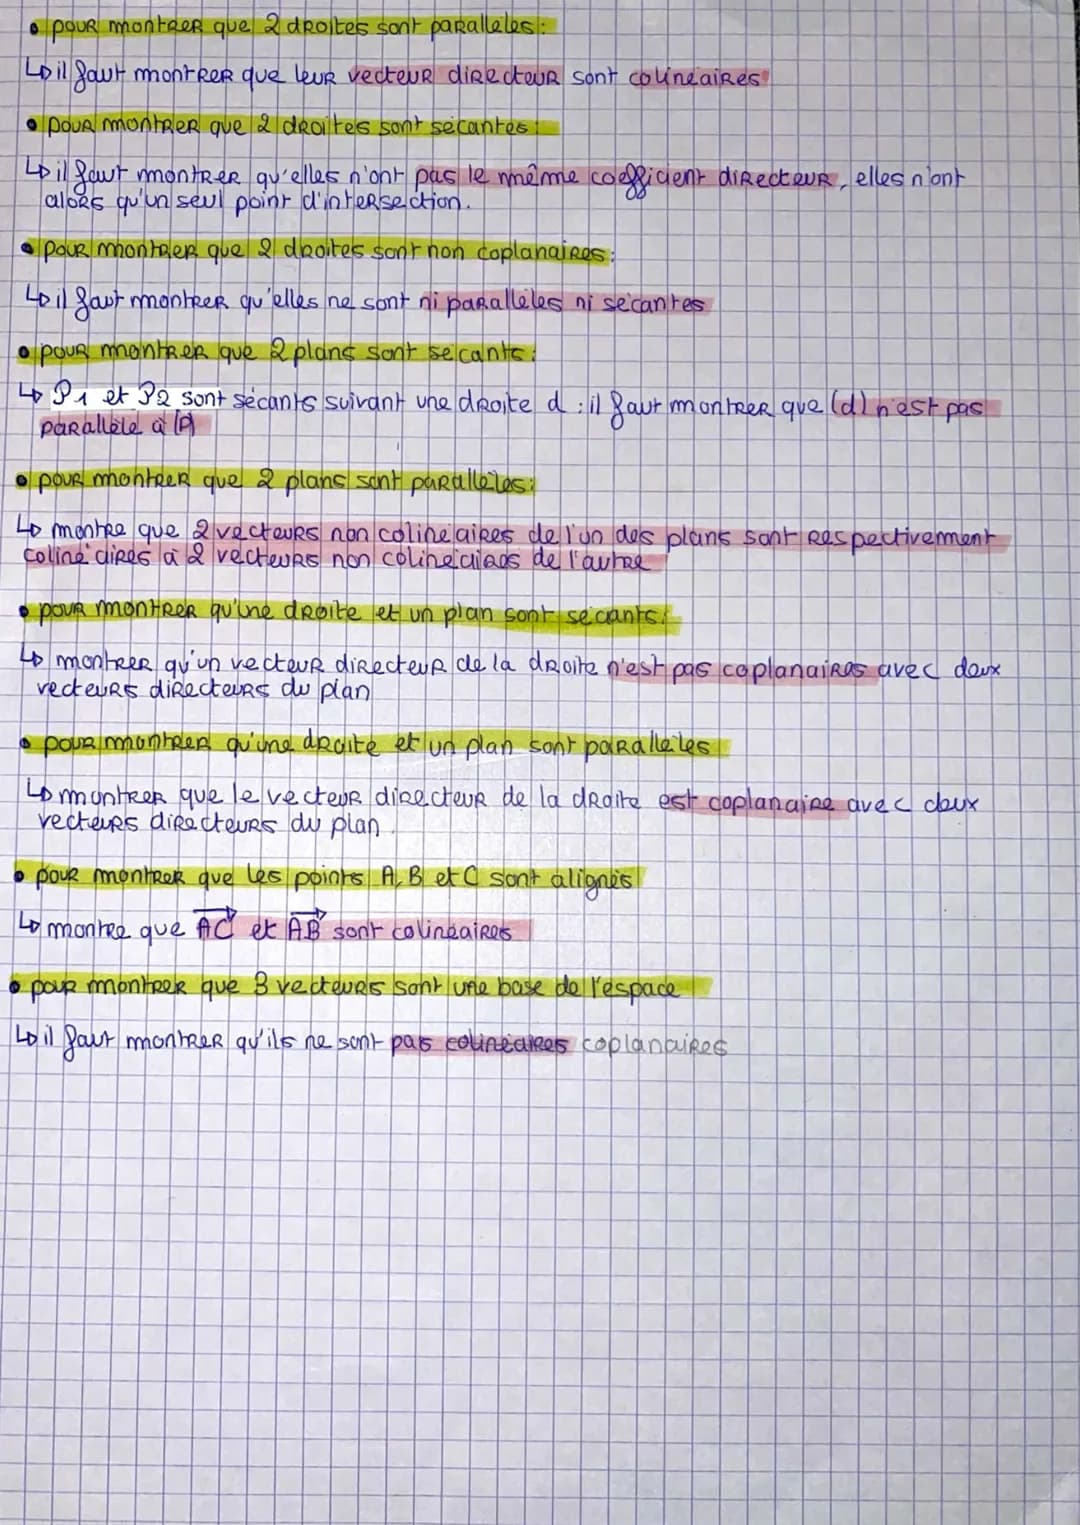 • pour montrer que 2 droites sont parallèles :
↳ il faut montrer que leur vecteur directeur sont colinéaires
• pour montrer que 2 droites sont sécantes :
↳ il faut montrer qu'elles n'ont pas le même coefficient directeur, elles n'ont
alors qu'un seul point d'intersection.
• pour montrer que 2 droites sont non coplanaires :
↳ il faut montrer qu'elles ne sont ni parallèles ni sécantes
• pour montrer que 2 plans sont sécants :
↳ P1 et P2 sont sécants suivant une droite d : il faut montrer que (d) n'est pas
parallèle à (P)
• pour montrer que 2 plans sont parallèles :
↳ montre que 2 vecteurs non colinéaires de l'un des plans sont respectivement
colinéaires à 2 vecteurs non colinéaires de l'autre
• pour montrer qu'une droite et un plan sont sécants :
↳ montrer qu'un vecteur directeur de la droite n'est pas coplanaires avec deux
vecteurs directeurs du plan
• pour montrer qu'une droite et un plan sont parallèles
↳ montrer que le vecteur directeur de la droite est coplanaire avec deux
vecteurs directeurs du plan.
• pour montrer que les points A, B et C sont alignés
↳ montre que AC et AB sont colinéaires
• pour montrer que 3 vecteurs sont une base de l'espace
↳ il faut montrer qu'ils ne sont pas colinéaires coplanaires